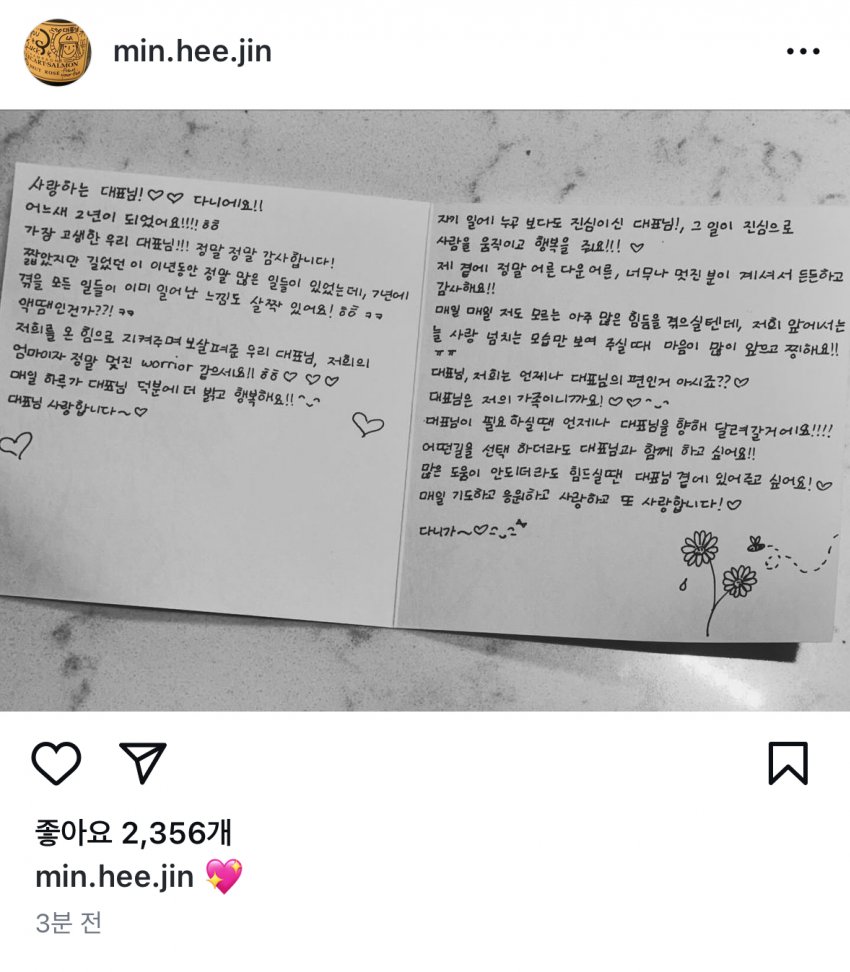 min.hee.jin
사랑하는 대표님!♡♡ 다니에요!!
어느새 2년이 되었어요!!!! ㅎㅎ
가장 고생한 우리 대표님!!! 정말 정말 감사합니다!
짧았지만 길었던 이 이년동안 정말 많은 일들이 있었는데, 7년에
겪을 모든 일들이 이미 일어난 느낌도 살짝 있어요! ㅎㅎ ㅋㅋ
액땜인건가??! ㅋㅋ
저희를 온 힘으로 지켜주며 보살펴준 우리 대표님, 저희의
엄마이자 정말 멋진 worrior 같으세요!! ㅎㅎ♡ ♡♡
매일 하루가 대표님 덕분에 더 밝고 행복해요!! ^‿^
대표님 사랑합니다~♡
자기 일에 누구 보다도 진심이신 대표님!, 그 일이 진심으로
사람을 움직이고 행복을 줘요!!! ♡
제 곁에 정말 어른 다운 어른, 너무나 멋진 분이 계셔서 든든하고
감사해요!!
매일 매일 저도 모르는 아주 많은 힘듦을 겪으실텐데, 저희 앞에서는
늘 사랑 넘치는 모습만 보여 주실 때 마음이 많이 앞으고 찡해요!!
ㅠㅠ
대표님, 저희는 언제나 대표님의 편인거 아시죠??♡
대표님은 저의 가족이니까요! ♡♡^‿^
대표님이 필요하실땐 언제나 대표님을 향해 달려갈거에요!!!!
어떤길을 선택 하더라도 대표님과 함께 하고 싶어요!!
많은 도움이 안되더라도 힘드실땐 대표님 곁에 있어주고 싶어요!♡
매일 기도하고 응원하고 사랑하고 또 사랑합니다!♡
다니가~♡^‿^
좋아요 2,356개
min.hee.jin 💖
3분 전